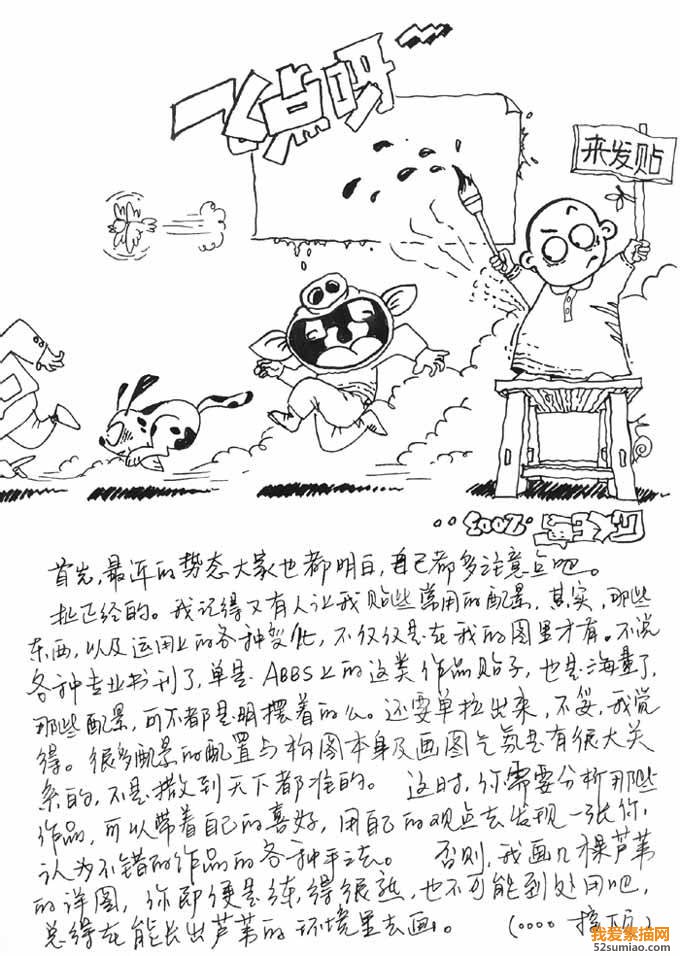 飞点呀
来发贴
2003.
首先,最近的势态大家也都明白,自己都多注意点吧。
扯正经的。我记得又有人让我贴些常用的配景,其实,那些
东西,以及运用上的各种变化,不仅仅是在我的图里才有。不说
各种专业书刊了,单是ABBS上的这类作品贴子,也是海量了,
那些配景,可不都是明摆着的么。还要单拉出来,不妥,我觉
得。很多配景的配置与构图本身及画图气氛是有很大关
系的,不是撒到天下都准的。 这时,你需要分析那些
作品,可以带着自己的喜好,用自己的观点去发现一张你
认为不错的作品的各种手法。 否则,我画几棵芦苇
的详图,你即便是练得很熟,也不可能到处用吧,
总得在能长出芦苇的环境里去画。 (....接下页)
我爱素描网
52sumiao.com